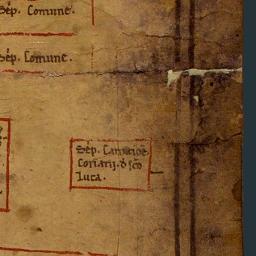 Sep. Comune.
Sep. Comune.
Sep.
Coriarii. d sco
Luca.